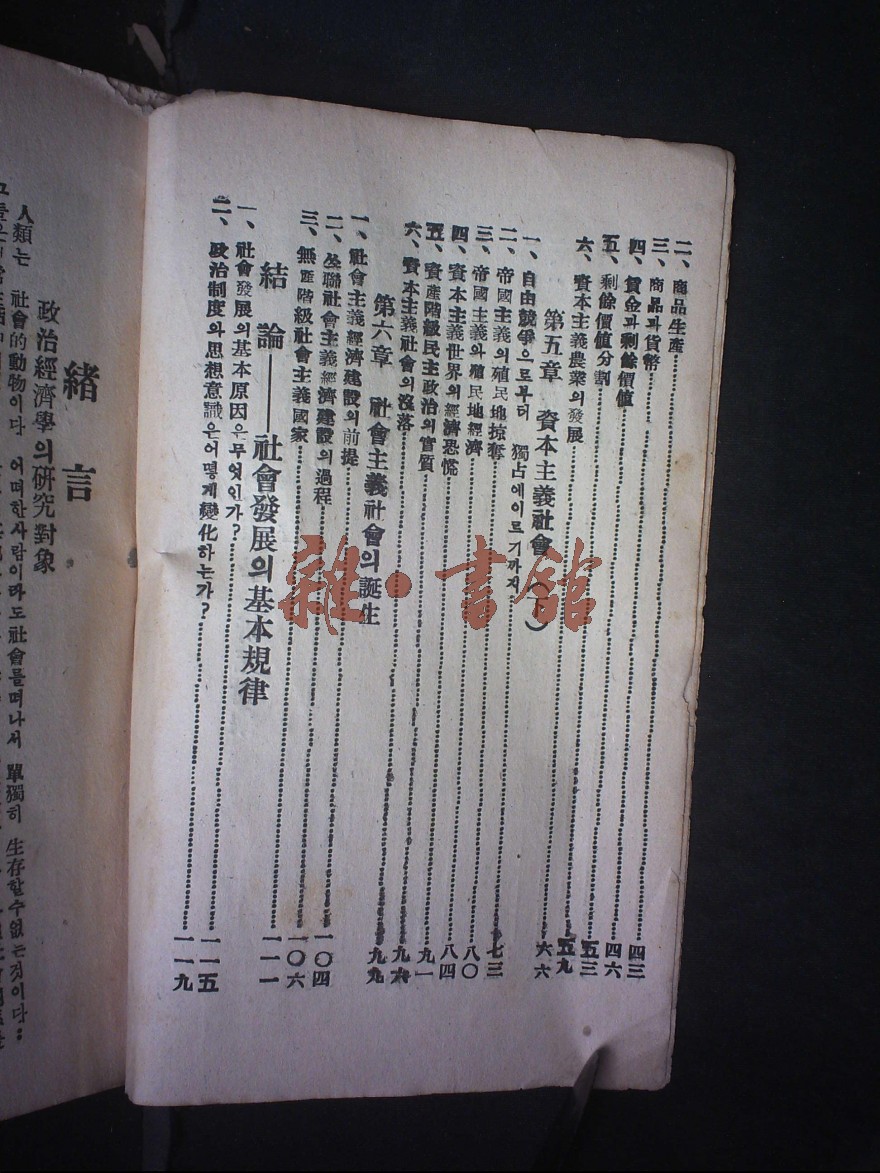 二、商品生產 四三
三、商品과貨幣 四六
四、賃金과剩餘價値 五三
五、剩餘價値分割 五九
六、資本主義農業의發展 六六
第五章 資本主義社會(下)
一、自由競爭으로부터 獨占에이르기까지 七三
二、帝國主義의殖民地掠奪 八〇
三、帝國主義와殖民地經濟 八四
四、資本主義世界의經濟恐慌 九一
五、資產階級民主政治의實質 九六
六、資本主義社會의沒落 九九
第六章 社會主義社會의誕生
一、社會主義經濟建設의前提 一〇四
二、쏘聯社會主義經濟建設의過程 一〇六
三、無產階級社會主義國家 一一一
結論——社會發展의基本規律
一、社會發展의基本原因은무엇인가? 一一五
二、政治制度와思想意識은어떻게變化하는가? 一一九
緖言
政治經濟學의硏究對象
人類는 社會的動物이다 어떠한사람이라도社會를떠나서 單獨히 生存할수없는것이다
雜·書館